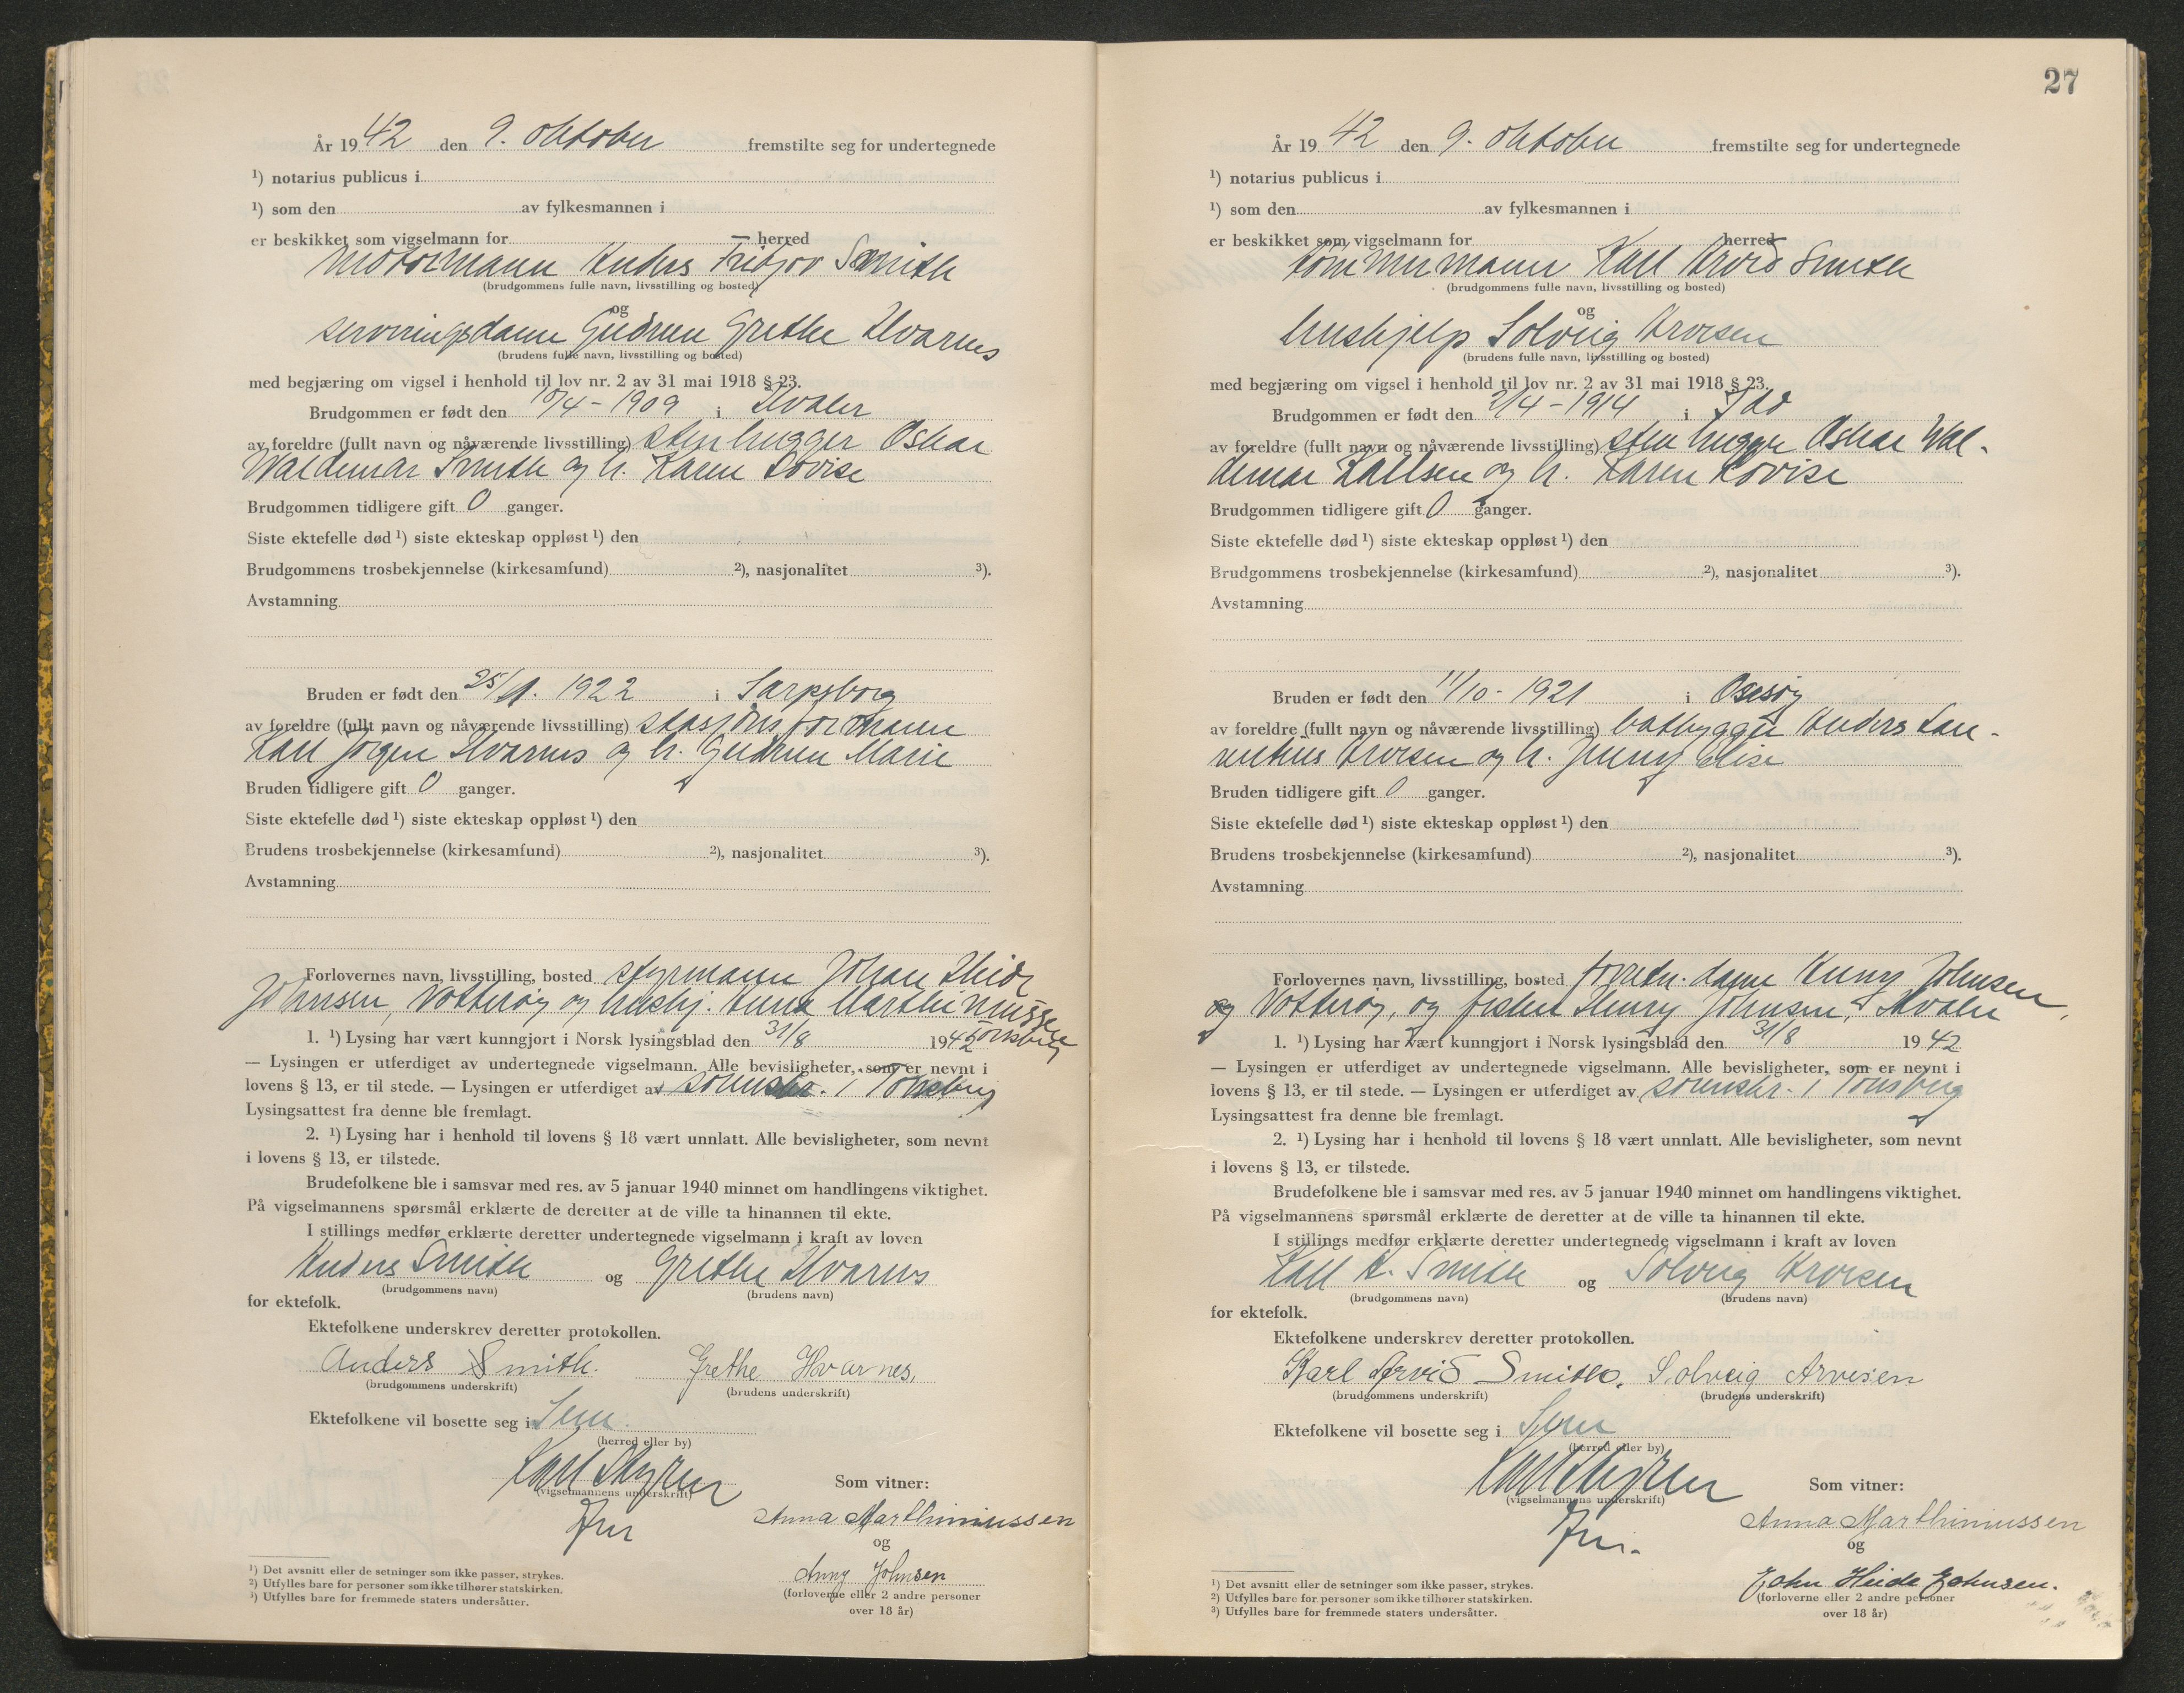 År 19 42 den 9. oktober fremstilte seg for undertegnede
¹) notarius publicus i
¹) som den av fylkesmannen i
er beskikket som vigselmann for herred
motormann Anders Fridjov Smith
(brudgommens fulle navn, livsstilling og bosted)
og
serveringsdame Gudrun Grethe Hvarnes
(brudens fulle navn, livsstilling og bosted)
med begjæring om vigsel i henhold til lov nr. 2 av 31 mai 1918 § 23.
Brudgommen er født den /4 - 1909 i Hvaler
av foreldre (fullt navn og nåværende livsstilling) stenhugger Oskar
Waldemar Smith og h. Karen Lovise
Brudgommen tidligere gift 0 ganger.
Siste ektefelle død ¹) siste ekteskap oppløst ¹) den
Brudgommens trosbekjennelse (kirkesamfund) ²), nasjonalitet ³).
Avstamning
Bruden er født den 25/ 1922 i Sarpsborg
av foreldre (fullt navn og nåværende livsstilling) stasjonsformann
Karl Jørgen Hvarnes og h. Gudrun Marie
Bruden tidligere gift 0 ganger.
Siste ektefelle død ¹) siste ekteskap oppløst ¹) den
Brudens trosbekjennelse (kirkesamfund) ²), nasjonalitet ³).
Avstamning
Forlovernes navn, livsstilling, bosted styrmann Johan Heide
Johnsen, Notterøy og hushj. Anna
1. ¹) Lysing har vært kunngjort i Norsk lysingsblad den 31/8 1942 Tønsberg
— Lysingen er utferdiget av undertegnede vigselmann. Alle bevisligheter, som er nevnt i
lovens § 13, er til stede. — Lysingen er utferdiget av sorenskr. i Tønsberg
Lysingsattest fra denne ble fremlagt.
2. ¹) Lysing har i henhold til lovens § 18 vært unnlatt. Alle bevisligheter, som nevnt
i lovens § 13, er tilstede.
Brudefolkene ble i samsvar med res. av 5 januar 1940 minnet om handlingens viktighet.
På vigselmannens spørsmål erklærte de deretter at de ville ta hinannen til ekte.
I stillings medfør erklærte deretter undertegnede vigselmann i kraft av loven
Anders Smith og Grethe Hvarnes
(brudgommens navn) (brudens navn)
for ektefolk.
Ektefolkene underskrev deretter protokollen.
Anders Smith. Grethe Hvarnes,
(brudgommens underskrift) (brudens underskrift)
Ektefolkene vil bosette seg i Sem.
(herred eller by)
Karl
(vigselmannens underskrift)
Som vitner:
Anna Marthinussen
og
Anny Johnsen
(forloverne eller 2 andre personer
over 18 år)
¹) Det avsnitt eller de setninger som ikke passer, strykes.
²) Utfylles bare for personer som ikke tilhører statskirken.
³) Utfylles bare for fremmede staters undersåtter.
27
År 19 42 den 9. oktober fremstilte seg for undertegnede
¹) notarius publicus i
¹) som den av fylkesmannen i
er beskikket som vigselmann for herred
tømmermann Karl Arvid Smith
(brudgommens fulle navn, livsstilling og bosted)
og
hushjelp Solveig Arvesen
(brudens fulle navn, livsstilling og bosted)
med begjæring om vigsel i henhold til lov nr. 2 av 31 mai 1918 § 23.
Brudgommen er født den 2/4 - 1914 i Idd
av foreldre (fullt navn og nåværende livsstilling) stenhugger Oskar Wal-
demar Karlsen og h. Karen Lovise
Brudgommen tidligere gift 0 ganger.
Siste ektefelle død ¹) siste ekteskap oppløst ¹) den
Brudgommens trosbekjennelse (kirkesamfund) ²), nasjonalitet ³).
Avstamning
Bruden er født den 11/10 - 1921 i
av foreldre (fullt navn og nåværende livsstilling) båtbygger Anders Lau-
rentius Arvesen og h. Jenny Elise
Bruden tidligere gift 0 ganger.
Siste ektefelle død ¹) siste ekteskap oppløst ¹) den
Brudens trosbekjennelse (kirkesamfund) ²), nasjonalitet ³).
Avstamning
Forlovernes navn, livsstilling, bosted forretn. dame Anny Johnsen
Notterøy, og fisker Henry Johnsen, Hvaler
1. ¹) Lysing har vært kunngjort i Norsk lysingsblad den 31/8 19 42
— Lysingen er utferdiget av undertegnede vigselmann. Alle bevisligheter, som er nevnt i
lovens § 13, er til stede. — Lysingen er utferdiget av sorenskr. i Tønsberg
Lysingsattest fra denne ble fremlagt.
2. ¹) Lysing har i henhold til lovens § 18 vært unnlatt. Alle bevisligheter, som nevnt
i lovens § 13, er tilstede.
Brudefolkene ble i samsvar med res. av 5 januar 1940 minnet om handlingens viktighet.
På vigselmannens spørsmål erklærte de deretter at de ville ta hinannen til ekte.
I stillings medfør erklærte deretter undertegnede vigselmann i kraft av loven
Karl A. Smith og Solveig Arvesen
(brudgommens navn) (brudens navn)
for ektefolk.
Ektefolkene underskrev deretter protokollen.
Karl Arvid Smith. Solveig Arvesen
(brudgommens underskrift) (brudens underskrift)
Ektefolkene vil bosette seg i Sem
(herred eller by)
Karl
(vigselmannens underskrift)
Som vitner:
Anna Marthinussen
og
John Heide Johnsen.
(forloverne eller 2 andre personer
over 18 år)
¹) Det avsnitt eller de setninger som ikke passer, strykes.
²) Utfylles bare for personer som ikke tilhører statskirken.
³) Utfylles bare for fremmede staters undersåtter.